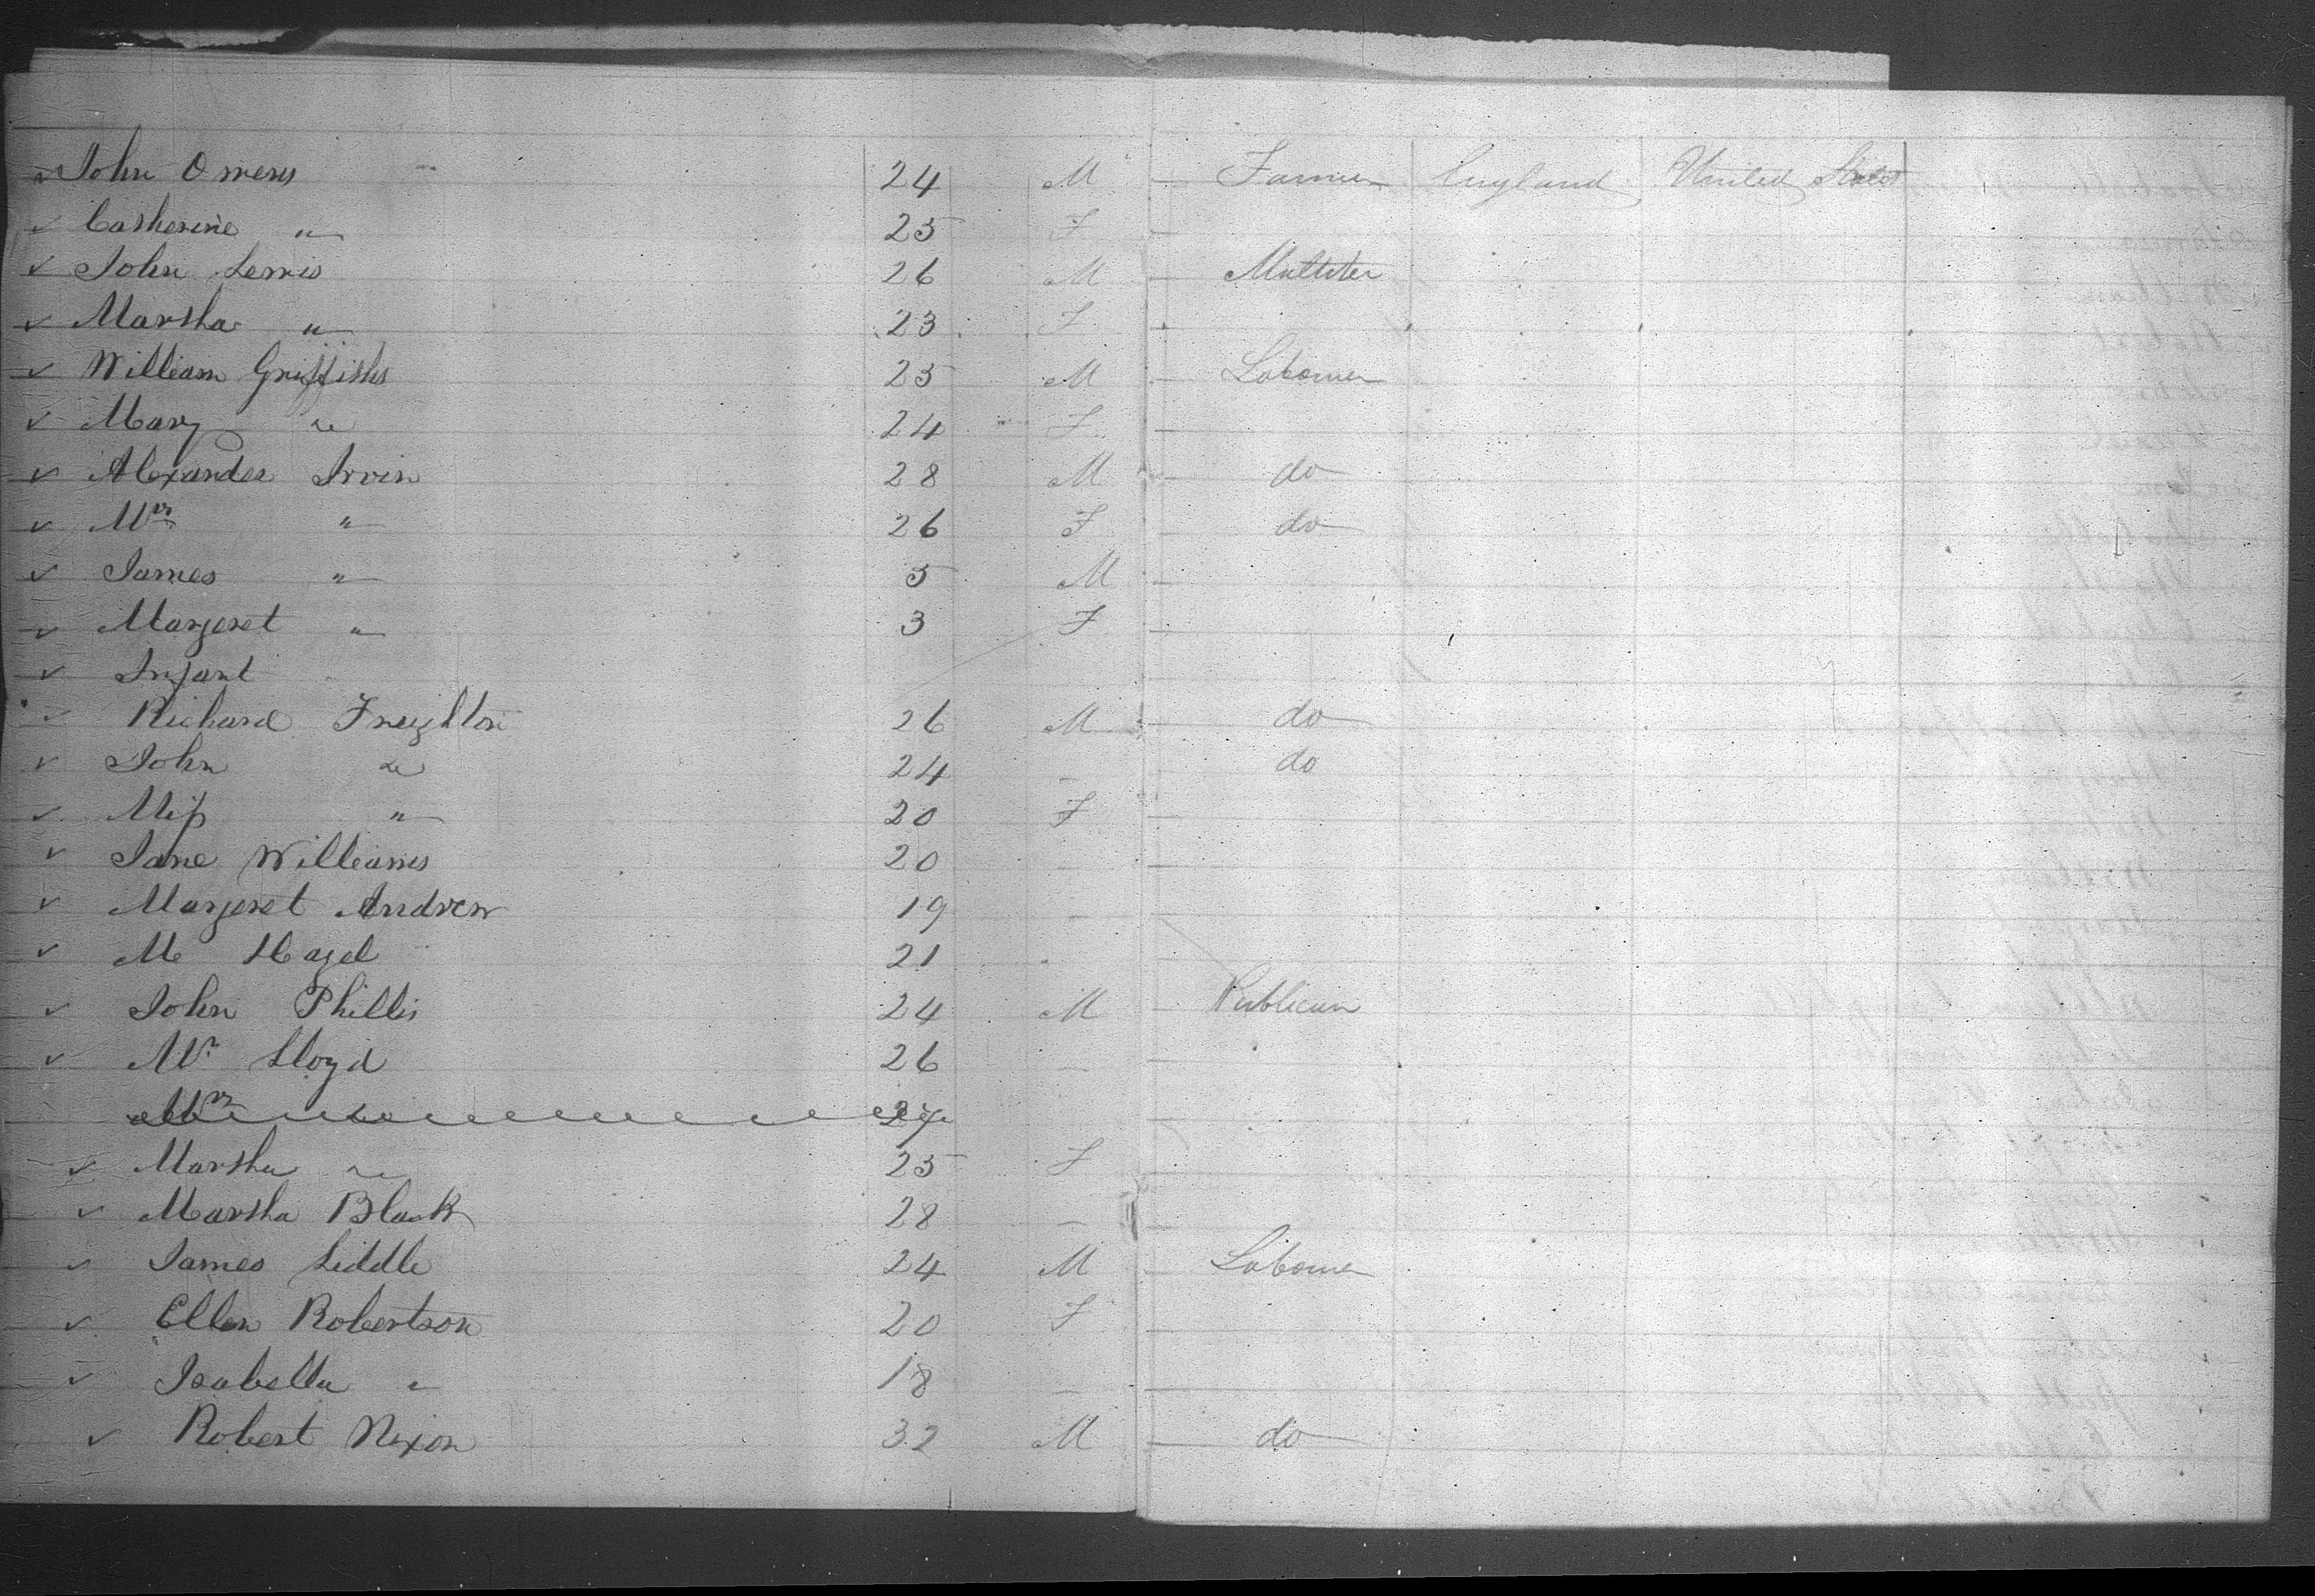 John Owens 24 M Farmer England United States
Catherine " 25 F
John Lewis 26 M
Martha " 23 F
William Griffiths 25 M Labourer
Mary " 24 F
Alexander Irvin 28 M do
Mrs " 26 F do
James " 5 M
Margeret " 3 F
Infant
Richard Freighton 26 M do
John " 24 - do
Miss " 20 F
Jane Williams 20 -
Margeret Andrew 19 -
M Hazel 21 -
John Phillis 24 M Publican
Mr Lloyd 26 -
Mrs Do 27
Martha " 25 F
Martha Black 28 -
James Liddle 24 M Labourer
Ellen Robertson 20 F
Isabella " 18 -
Robert Nixon 32 M do